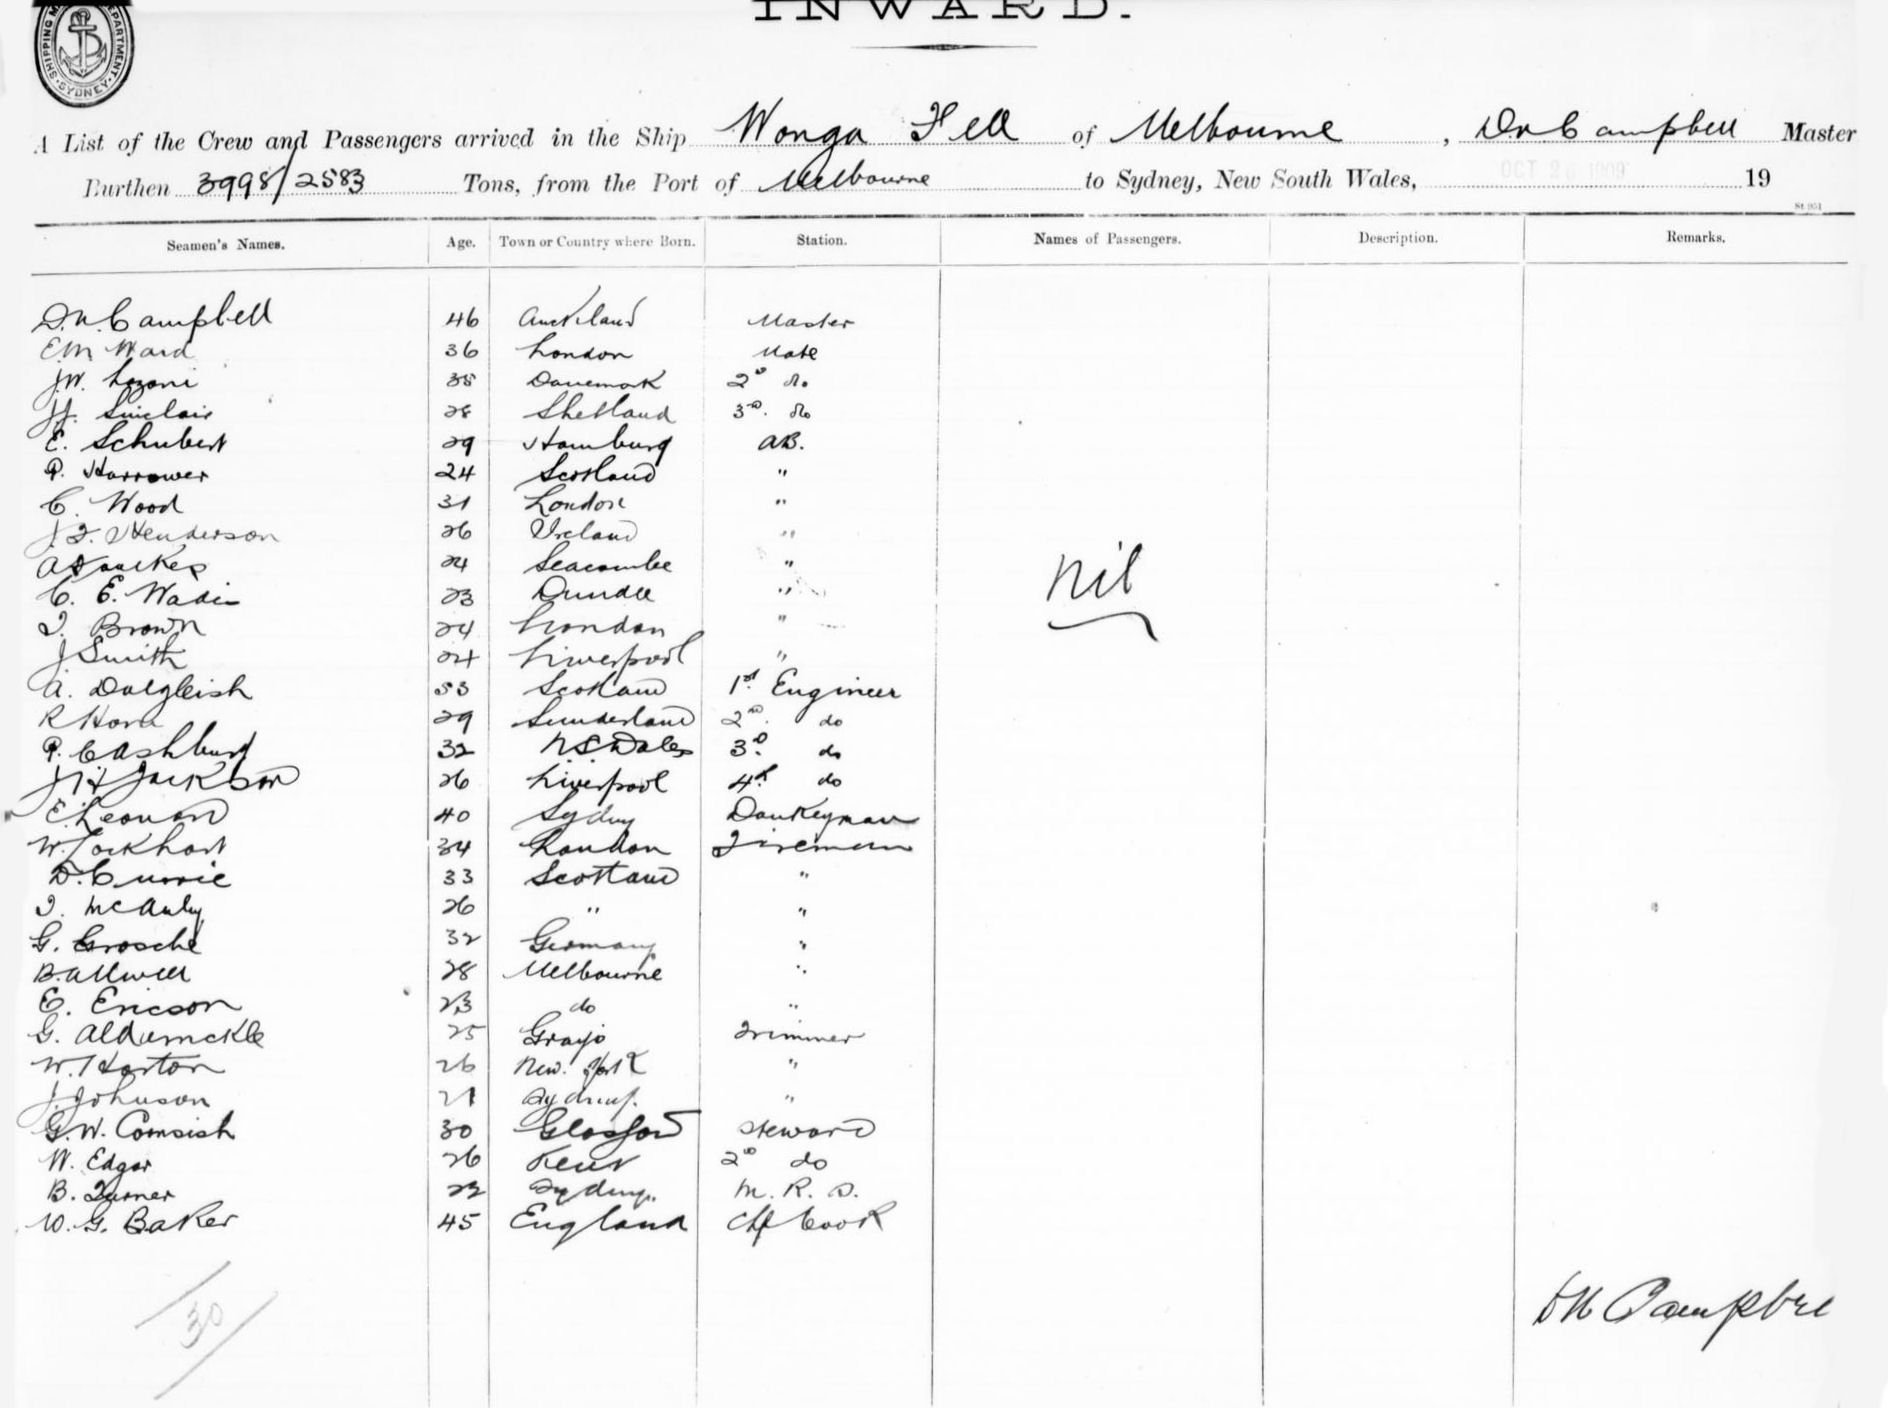 INWARD.
SHIPPING MASTER'S DEPARTMENT. SYDNEY
A List of the Crew and Passengers arrived in the Ship Wonga Fell of Melbourne, D.N. Campbell Master
Burthen 3998/2583 Tons, from the Port of Melbourne to Sydney, New South Wales, OCT 26 1909 19
St. 951
Seamen's Names. Age. Town or Country where Born. Station. Names of Passengers. Description. Remarks.
D.N. Campbell 46 Auckland Master
E.M. Ward 36 London Mate
J.W. 35 Danemark 2d do
J.J. Sinclair 28 Shetland 3rd. do
E. Schubert 29 Hamburg AB.
P. Harrower 24 Scotland "
C. Wood 31 London "
J.F. Henderson 26 Ireland "
A 24 Seacombe "
nil
C. E. Wadie 23 Dundee "
J. Brown 24 London "
J Smith 24 Liverpool "
A. Dalgleish 53 Scotland 1st Engineer
R Horn 29 Sunderland 2nd. do
P. Cashburd 32 N.S. Wales 3d. do
J H Jackson 26 Liverpool 4th do
E. Leonard 40 Sydney Donkeyman
W. Lockhart 34 London Fireman
D. Currie 33 Scotland "
J. McAuly 26 " "
G. Grosche 32 Germany "
B. Allwell 28 Melbourne "
E. Ericson 23 do "
G. 25 Trimmer
W. Horton 26 New. York "
J. Johnson 21 Sydney. "
G.W. Cornish 30 Glasgow Steward
W. Edgar 26 Kent 2nd do
B. Turner 22 Sydney. M. R. S.
W. G. Baker 45 England Chf Cook
30
DN Campbell